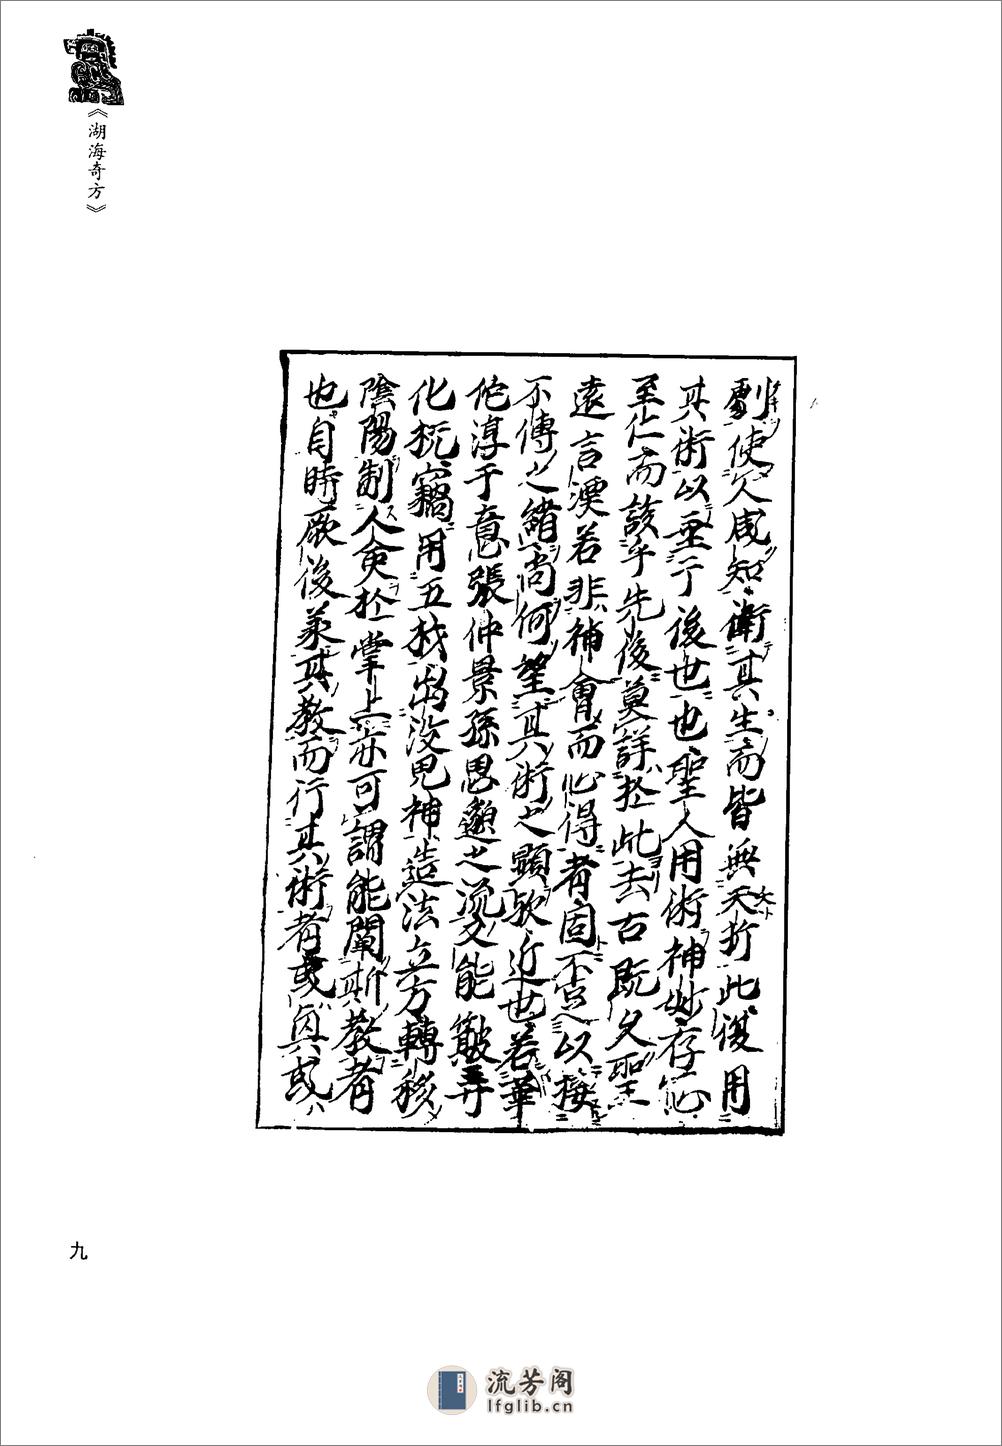 《湖海奇方》
劑使人咸知衛其生而皆無夭折此後用
其術以垂于後世也聖人用術神妙存心
至仁而該乎先後莫詳於此去古既久聖
遠言湮若非補會而心得者固不足以接
不傳之緒尚何望其術之顯歟近世若華
佗淳于意張仲景孫思邈之流又能簸弄
化機竊用五材出没鬼神造法立方轉移
陰陽制人命於掌上亦可謂能闡斯教者
也自時厥後業其教而行其術者或真或
九
流芳阁
lfglib.cn